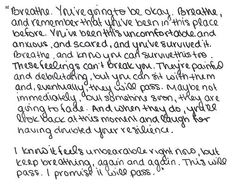 "Breathe. You're going to be okay. Breathe,
and remember that you've been in this place
before. You've been this uncomfortable and
anxious, and scared, and you've survived it.
Breathe, and know you can survive this too.
These feelings can't break you. They're painful
and debilitating, but you can sit with them
and, eventually, they will pass. Maybe not
immediately, but sometime soon, they are
going to fade. And when they do, you'll
look back at this moment and laugh for
having doubted your resilience.
I know it feels unbearable right now, but
keep breathing, again and again. This will
pass. I promise it will pass.